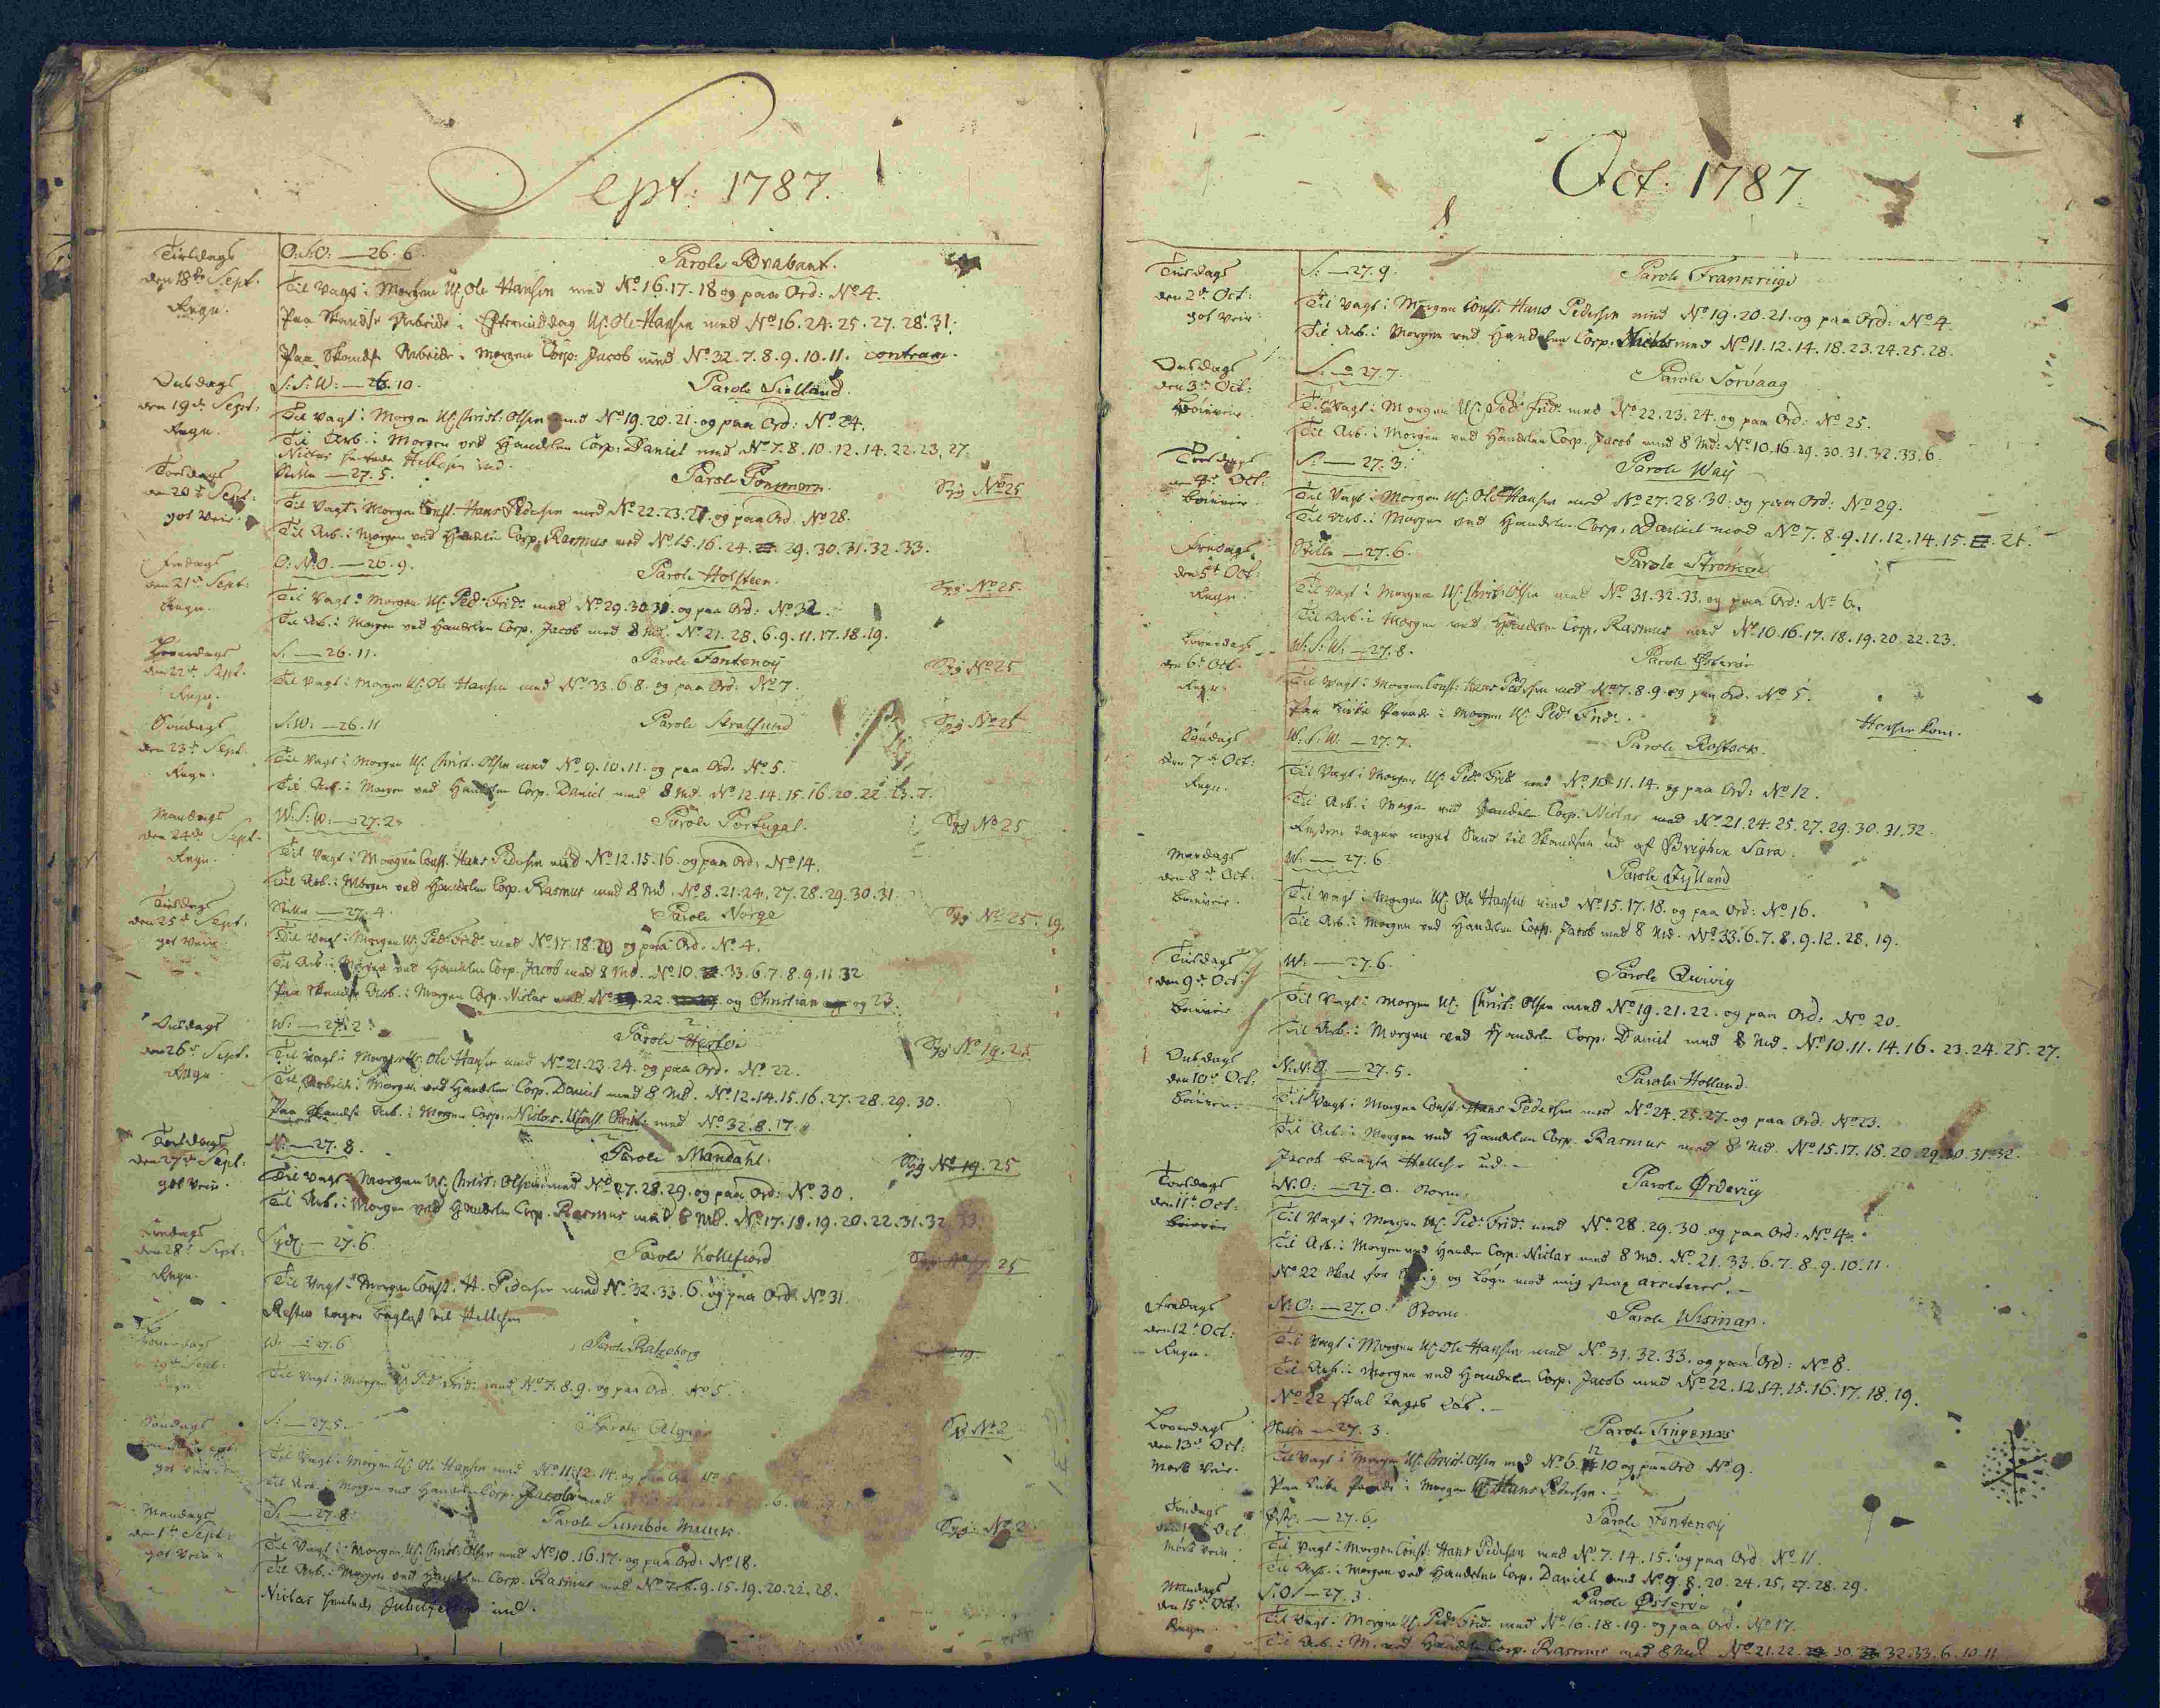 Sept: 1787.
Tirsdags den 18de Sept. Regn.
O:S:O: — 26. 6. Parole Brabant.
Til Vagt i Morgen Uf. Ole Hansen med No 16. 17. 18 og paa Ord: No 4.
Paa Skandse Arbeide i Eftermiddag Uf: Ole Hansen med No 16. 24. 25. 27. 28. 31.
Paa Skandse Arbeide i Morgen Corp: Jacob med No 32. 7. 8. 9. 10. 11. contram.
Onsdags den 19de Sept: Regn.
S:S:W: — 26. 10. Parole Siælland.
Til Vagt i Morgen Uf: Christ: Olsen med No 19. 20. 21. og paa Ord: No 24.
Til Arb: i Morgen ved Handelen Corp: Daniel med No 7. 8. 10. 12. 14. 22. 23. 27.
Niclas hellesen ind.
Torsdags den 20de Sept: got Veir.
Stille — 27. 5. Parole Syg No 25
Til Vagt i Morgen Const. Hans Pedersen med No 22. 23. 27. og paa Ord. No 28.
Til Arb. i Morgen ved Handelen Corp. Rasmus med No 15. 16. 24. 29. 30. 31. 32. 33.
Fredags den 21de Sept: Regn.
O:N:O. — 26. 9. Parole Holsteen. Syg No 25.
Til Vagt i Morgen Uf. Ped: Frid: med No 29. 30. 31. og paa Ord: No 32.
Til Arb. i Morgen ved Handelen Corp. Jacob med 8 Md. No 21. 28. 6. 9. 11. 17. 18. 19.
Løverdags den 22de Sept. Regn.
S. — 26. 11. Parole Fontenoy Syg No 25
Til Vagt i Morgen Uf. Ole Hansen med No 33. 6. 8. og paa Ord: No 7.
Søndags den 23de Sept. Regn.
S:W: — 26. 11 Parole Stralsund Syg No 25
Til Vagt i Morgen Uf. Christ. Olsen med No 9. 10. 11. og paa Ord. No 5.
Til Arb. i Morgen ved Handelen Corp. Daniel med 8 Md. No 12. 14. 15. 16. 20. 22. 23. 7.
Mandags den 24de Sept. Regn
W:S:W: — 27. 2. Parole Portugal. Syg No 25
Til Vagt i Morgen Const. Hans Pedersen med No 12. 15. 16. og paa Ord: No 14.
Til Arb. i Morgen ved Handelen Corp. Rasmus med 8 Md. No 8. 21. 24. 27. 28. 29. 30. 31.
Tirsdags den 25de Sept. got Veir.
Stille — 27. 4. Parole Norge Syg No 25. 19.
Til Vagt i Morgen Uf. Ped: Frid: med No 17. 18. 20 og paa Ord. No 4.
Til Arb. i Morgen ved Handelen Corp. Jacob med 8 Md. No 10. 33. 6. 7. 8. 9. 11 32
Paa Skandse Arb. i Morgen Corp. Niclas med No 22. og Christian og 23.
Onsdags den 26de Sept. Regn
W: — 27. 2. Parole Syg No 19. 25
Til Vagt i Morgen Uf. Ole Hansen med No 21. 23. 24. og paa Ord. No 22.
Til Arbeide i Morgen ved Handelen Corp. Daniel med 8 Md. No 12. 14. 15. 16. 27. 28. 29. 30.
Paa Skandse Arb. i Morgen Corp: Niclas. Uf Christ: med No 32. 8. 17.
Torsdags den 27de Sept: got Veir.
N: — 27. 8. Parole Mandahl. Syg No 19. 25
Til Vagt i Morgen Uf. Christ: Olsen med No 27. 28. 29. og paa Ord: No 30.
Til Arb. i Morgen ved Handelen Corp. Rasmus med 8 Md. No 17. 18. 19. 20. 22. 31. 32 33.
Fredags den 28de Sept: Regn.
Syd. — 27. 6. Parole Kollefiord 25
Til Vagt i Morgen Const. H. Pedersen med No 32. 33. 6. og paa Ord. No 31.
Resten tager til Hellesen
29de Sept:
W. — 27. 6 Parole Ratzeborg
Til Vagt i Morgen Uf Ped: Frid: med No 7. 8. 9. og paa Ord. No 5.
Søndags got Veir
S: — 27. 5. Parole Syg No 2
Til Vagt i Morgen Uf. Ole Hansen med No 11. 12. 14. og paa Ord No 5
Til Arb. i Morgen ved Handelen Corp. Jacob med
Mandags den 1de Sept: got Veir
S. — 27. 8. Parole Sumbøe Munk. Syg: No 2
Til Vagt i Morgen Uf. Christ. Olsen med No 10. 16. 17. og paa Ord: No 18.
Til Arb. i Morgen ved Handelen Corp. Rasmus med No 7. 8. 9. 15. 19. 20. 22. 28.
Niclas ind.
Oct: 1787.
Tirsdags den 2de Oct: got Veir
S: — 27. 9. Parole Frankrige
Til Vagt i Morgen Const. Hans Pedersen med No 19. 20. 21. og paa Ord: No 4.
Til Arb. i Morgen ved Handelen Corp. Niclas med No 11. 12. 14. 18. 23. 24. 25. 28.
Onsdags den 3de Oct:
S. — 27. 7. Parole Sørvaag
Til Vagt i Morgen Uf. Ped: Frid: med No 22. 23. 24. og paa Ord: No 25.
Til Arb. i Morgen ved Handelen Corp. Jacob med 8 Md: No 10. 16. 29. 30. 31. 32. 33. 6.
Torsdags den 4de Oct:
S: — 27. 3. Parole Waij
Til Vagt i Morgen Uf: Ole Hansen med No 27. 28. 30. og paa Ord: No 29.
Til Arb. i Morgen ved Handelen Corp. Daniel med No 7. 8. 9. 11. 12. 14. 15. 21.
Fredags den 5te Oct: Regn
Stille — 27. 6. Parole Strømøe
Til Vagt i Morgen Uf. Christ: Olsen med No 31. 32. 33. og paa Ord: No 6.
Til Arb. i Morgen ved Handelen Corp. Rasmus med No 10. 16. 17. 18. 19. 20. 22. 23.
Løverdags den 6te Oct. Regn.
W:S:W: — 27. 8. Parole Østerøe
Til Vagt i Morgen Const: Hans Pedersen med No 7. 8. 9. og paa Ord. No 5.
Paa Kirke Parade i Morgen Uf. Ped: Frid:
Søndags den 7de Oct: Regn.
W:S:W: — 27. 7. Parole Rostock.
Til Vagt i Morgen Uf. Ped: Frid: med No 10. 11. 14. og paa Ord: No 12.
Til Arb. i Morgen ved Handelen Corp. Niclas med No 21. 24. 25. 27. 29. 30. 31. 32.
Resten tager noget Sand til Skandsen ud af Brighen Sara.
Mandags den 8de Oct.
W: — 27. 6. Parole Jylland
Til Vagt i Morgen Uf. Ole Hansen med No 15. 17. 18. og paa Ord: No 16.
Til Arb. i Morgen ved Handelen Corp. Jacob med 8 Md. No 33. 6. 7. 8. 9. 12. 28. 19.
Tirsdags den 9de Oct:
W: — 27. 6. Parole Qvivig
Til Vagt i Morgen Uf. Christ: Olsen med No 19. 21. 22. og paa Ord. No 20.
Til Arb. i Morgen ved Handelen Corp. Daniel med 8 Md. No 10. 11. 14. 16. 23. 24. 25. 27.
Onsdags den 10de Oct:
N:N:O — 27. 5. Parole Holland.
Til Vagt i Morgen Const. Hans Pedersen med No 24. 25. 27. og paa Ord: No 23.
Til Arb. i Morgen ved Handelen Corp. Rasmus med 8 Md. No 15. 17. 18. 20. 29. 30. 31. 32.
Jacob bragte Hellese ud.
Torsdags den 11te Oct:
N:O: — 27. 0. Storm. Parole Ørdeviig
Til Vagt i Morgen Uf. Ped: Frid: med No 28. 29. 30. og paa Ord: No 4.
Til Arb. i Morgen ved Handelen Corp. Niclas med 8 Md. No 21. 33. 6. 7. 8. 9. 10. 11.
No 22 skal for og Løgn mod mig strax arriteres.
Fredags den 12te Oct: Regn.
N:O: — 27. 0. Storm Parole Wismar.
Til Vagt i Morgen Uf. Ole Hansen med No 31. 32. 33. og paa Ord: No 8.
Til Arb. i Morgen ved Handelen Corp. Jacob med No 22. 12. 14. 15. 16. 17. 18. 19.
No 22 skal tages løs.
Løverdags den 13de Oct: Mørk Veir.
Stille — 27. 3. Parole Tingenæs
Til Vagt i Morgen Uf. Christ. Olsen med No 6. 12 10 og paa Ord. No 9.
Paa Kirke Parade i Morgen Hans Pedersen.
Søndags Oct Mørk Veir
Øst. — 27. 6. Parole Fontenoy
Til Vagt i Morgen Const: Hans Pedersen med No 7. 14. 15. og paa Ord. No 11.
Til Arb. i Morgen ved Handelen Corp. Daniel med No 9. 8. 20. 24. 25. 27. 28. 29.
Mandags den 15de Oct. Regn
S:O: — 27. 3. Parole Østerøe
Til Vagt i Morgen Uf. Ped: Frid. med No 16. 18. 19. og paa Ord. No 17.
Til Arb. i M. ved Handelen Corp. Rasmus med 8 Md No 21. 22. 30. 32. 33. 6. 10. 11